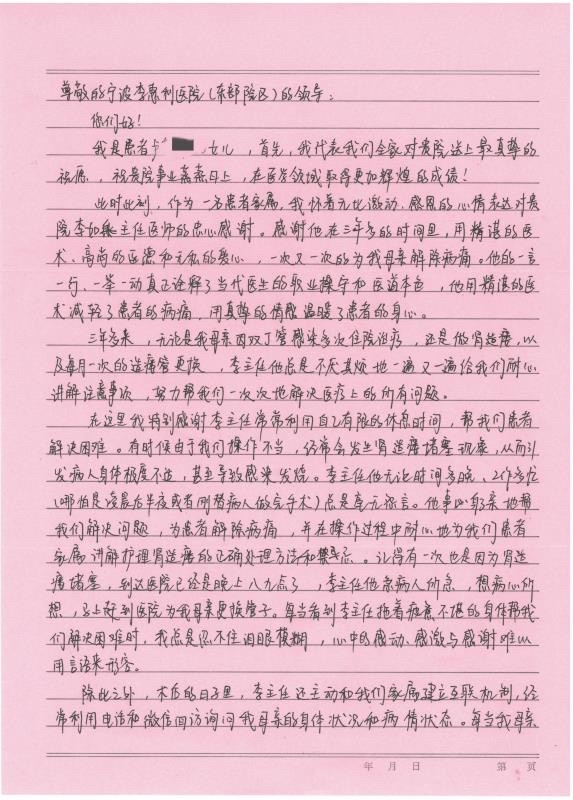 尊敬的宁波李惠利医院(东部院区)的领导:
你们好!
我是患者卢 女儿,首先,我代表我们全家对贵院送上最真挚的
祝愿,祝贵院事业蒸蒸日上,在医学领域取得更加辉煌的成绩!
此时此刻,作为一名患者家属,我怀着无比激动、感恩的心情表达对贵
院李如乐主任医师的衷心感谢。感谢他在三年多的时间里,用精湛的医
术、高尚的医德和无私的爱心,一次又一次的为我母亲解除病痛。他的一言
一行、一举一动真正诠释了当代医生的职业操守和医道本色,他用精湛的医
术减轻了患者的病痛,用真挚的情感温暖了患者的身心。
三年多来,无论是我母亲因双丁管感染多次住院治疗,还是做肾造瘘,以
及每月一次的造瘘管更换,李主任他总是不厌其烦地一遍又一遍给我们耐心
讲解注意事项,努力帮我们一次次地解决医疗上的所有问题。
在这里我特别感谢李主任常常利用自己有限的休息时间,帮我们患者
解决困难。有时候由于我们操作不当,经常会发生肾造瘘堵塞现象,从而引
发病人身体极度不适,甚至导致感染发烧。李主任他无论时间多晚、工作多忙
(哪怕是凌晨后半夜或者刚替病人做完手术)总是毫无怨言。他事必躬亲地帮
我们解决问题,为患者解除病痛,并在操作过程中耐心地为我们患者
家属讲解护理肾造瘘的正确处理方法和禁忌。记得有一次也是因为肾造
瘘堵塞,到达医院已经是晚上八九点了,李主任他急病人所急,想病人所
想,马上赶到医院为我母亲更换管子。每当看到李主任拖着疲惫不堪的身体帮我
们解决困难时,我总是忍不住泪眼模糊,心中的感动、感激与感谢难以
用言语来形容。
除此之外,术后的日子里,李主任还主动和我们家属建立互联机制,经
常利用电话和微信回访询问我母亲的身体状况和病情状态。每当我母亲
年 月 日 第 页